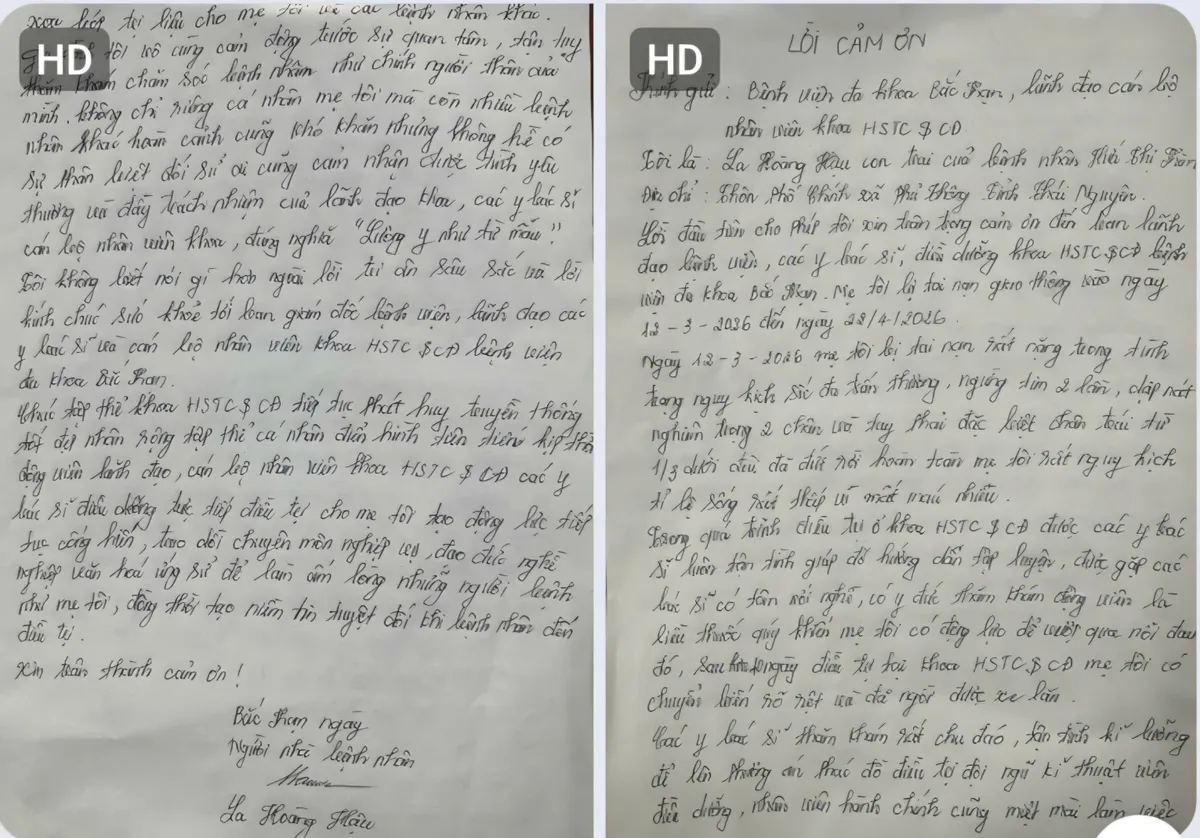 HD
xoa bóp trị liệu cho mẹ tôi và các bệnh nhân khác.
tôi vô cùng cảm động trước sự quan tâm, tận tụy
thăm khám chăm sóc bệnh nhân như chính người thân của
mình. Không chỉ riêng cá nhân mẹ tôi mà còn nhiều bệnh
nhân khác hoàn cảnh cũng khó khăn nhưng không hề có
sự phân biệt đối sử ai cũng cảm nhận được tình yêu
thương và đầy trách nhiệm của lãnh đạo khoa, các y bác sĩ
cán bộ nhân viên khoa, đúng nghĩa "Lương y như từ mẫu".
Tôi không biết nói gì hơn ngoài lời tri ân sâu sắc và lời
kính chúc sức khỏe tới ban giám đốc bệnh viện, lãnh đạo các
y bác sĩ và cán bộ nhân viên khoa HSTC $ CĐ bệnh viện
đa khoa Bắc Kạn.
Chúc tập thể khoa HSTC $ CĐ tiếp tục phát huy truyền thống
tốt đẹp nhân rộng tập thể cá nhân điển hình tiên tiến kịp thời
động viên lãnh đạo, cán bộ nhân viên khoa HSTC $ CĐ các y
bác sĩ điều dưỡng trực tiếp điều trị cho mẹ tôi tạo động lực tiếp
tục cống hiến, trao dồi chuyên môn nghiệp vụ, đạo đức nghề
nghiệp văn hoá ứng sử để làm ấm lòng những người bệnh
như mẹ tôi, đồng thời tạo niềm tin tuyệt đối khi bệnh nhân đến
điều trị.
Xin trân thành cảm ơn !
Bắc Kạn ngày
Người nhà bệnh nhân
La Hoàng Hậu
HD
LỜI CẢM ƠN
Kính gửi : Bệnh viện đa khoa Bắc Kạn, lãnh đạo cán bộ
nhân viên khoa HSTC $ CĐ.
Tôi là : La Hoàng Hậu con trai của bệnh nhân Thị
Địa chỉ : Thôn Phố Chính xã Phủ Thông Tỉnh Thái Nguyên.
Lời đầu tiên cho phép tôi xin trân trọng cảm ơn đến ban lãnh
đạo bệnh viện, các y bác sĩ, điều dưỡng khoa HSTC $ CĐ bệnh
viện đa khoa Bắc Kạn. Mẹ tôi bị tai nạn giao thông vào ngày
12 - 3 - 2026 đến ngày 22/4/2026.
Ngày 12-3-2026 mẹ tôi bị tai nạn rất nặng trong tình
trạng nguy kịch Sốc đa trấn thương, ngừng tim 2 lần, dập nát
nghiêm trọng 2 chân và tay phải đặc biệt chân trái từ
1/3 dưới đùi đã đứt rời hoàn toàn mẹ tôi rất nguy kịch
tỉ lệ sống rất thấp vì mất máu nhiều.
Trong quá trình điều trị ở khoa HSTC $ CĐ được các y bác
sĩ luôn tận tình giúp đỡ hướng dẫn tập luyện, được gặp các
bác sĩ có tâm với nghề, có y đức thăm khám động viên là
liều thuốc quý khiến mẹ tôi có động lực để vượt qua nỗi đau
đó, sau hơn 40 ngày điều trị tại khoa HSTC $ CĐ mẹ tôi có
chuyển biến rõ rệt và đã ngồi được xe lăn.
Các y bác sĩ thăm khám rất chu đáo, tận tình kĩ lưỡng
để lên phương án phác đồ điều trị đội ngũ kĩ thuật viên
điều dưỡng, nhân viên hành chính cũng miệt mài làm việc